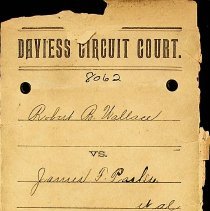 DAVIESS CIRCUIT COURT.
8062
Robert B. Wallace
VS.
James T.
et al